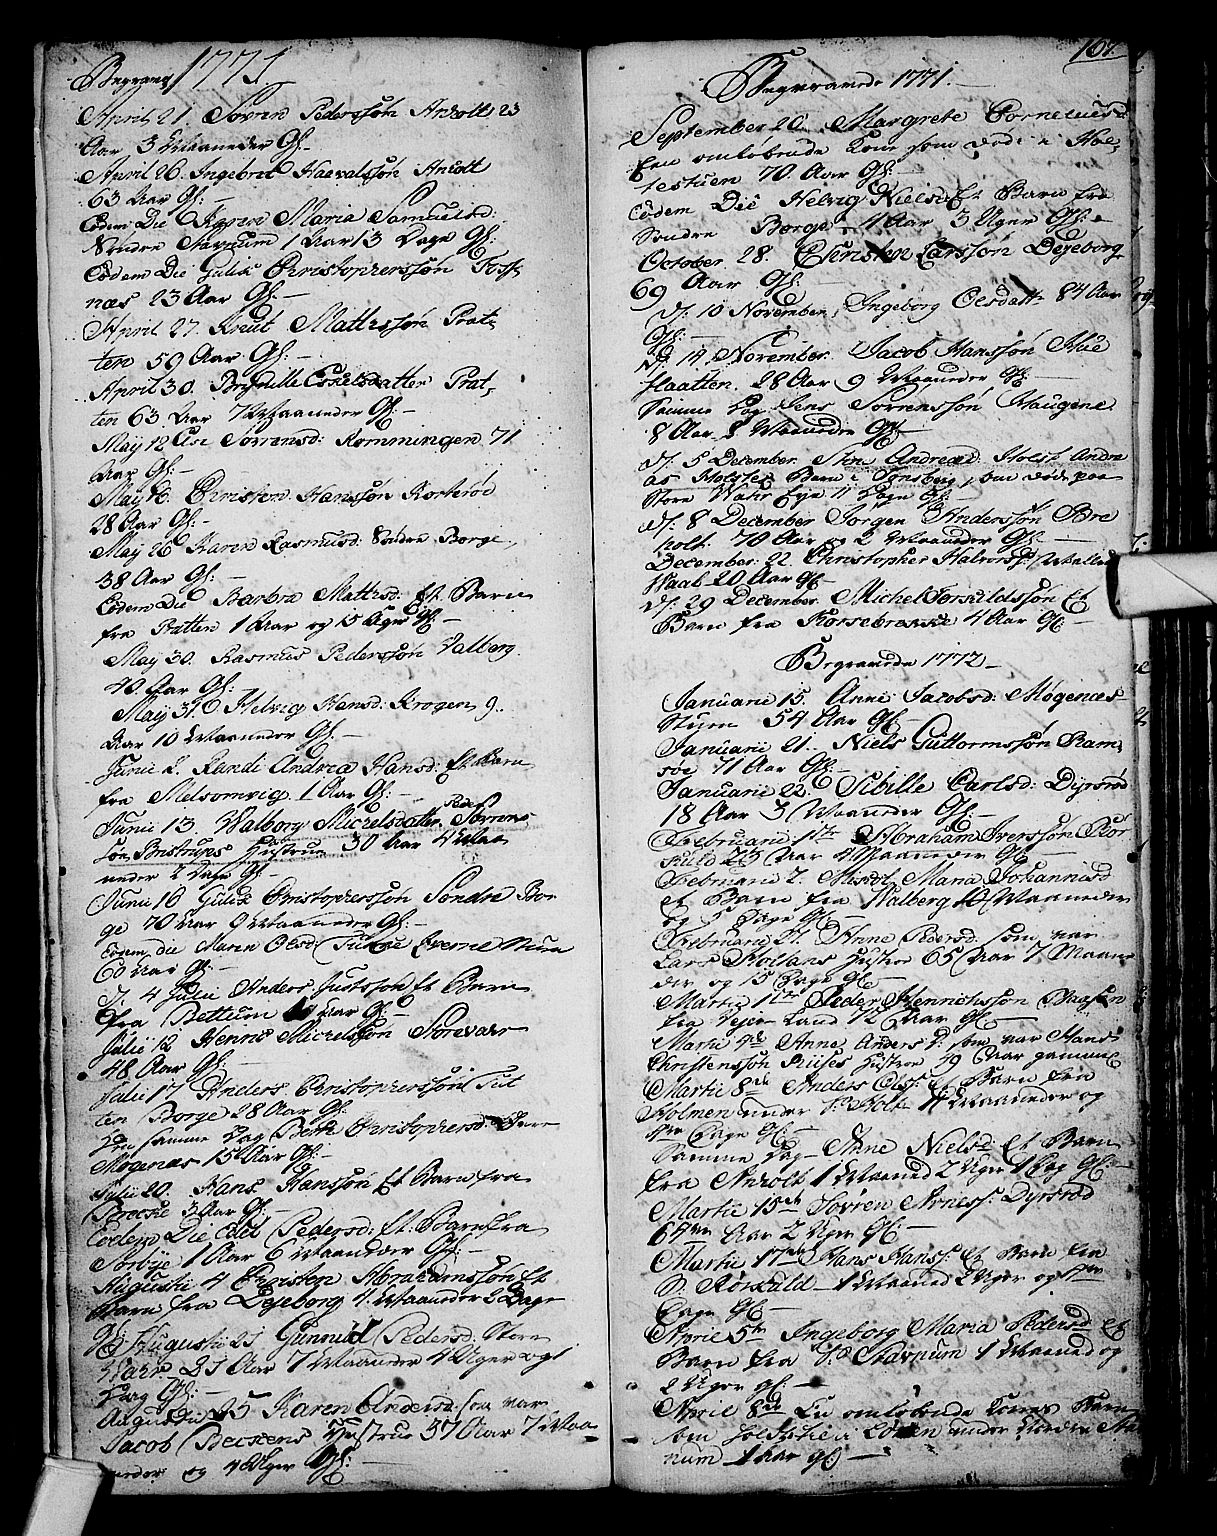 Begravne 1771
April 21. Søvren Pedersøn Anholt 23
Aar 3 Maaneder Gl. –
April 26. Ingebret Haavalsøn Anholt
63 Aar Gl: –
Eodem Die Karen Maria Samuelsd:
Søndre Stavnum 1 Aar 13 Dage Gl:
Eodem Die Gulik Christophersøn Foss
næs 23 Aar Gl: –
April 27. Knut Mathissøn Prat-
ten 59 Aar Gl: –
April 30. Brynille Eskelsdatter Prat,
ten 63 Aar 7 Maaneder Gl: –
May 12 Else Sørrensd: Romminegen 71
Aar Gl: –
May 16. Christen Hanssøn Korterød
28 Aar Gl: –
May 26 Karen Rasmusd: Søndre Borge,
38 Aar Gl: –
Eodem Die Barbra Mathisd: Et Barn
fra Pratten 1 Aar og 15 Uger Gl: –
May 30. Rasmus Pedersøn Valberg.
40 Aar Gl: –
May 31. Helvig Hansd: Krogen 9.
Aar 10 Maaneder Gl: –
Junii 2. Randi Andrea Hansd: Et Barn
fra Melsomvig. 1 Aar Gl: –
Junii 13. Valborg Michelsdatter Peder Sørrens
søn Bristrups Hustrue 30 Aar 4 Maa
neder 2 Dage Gl: –
Junii 16 Gulik Christophersøn Søndre Bor
ge 70 Aar 9 Maaneder Gl: –
Eodem die Maren Olsd:
60 Aar Gl: –
D. 4 Julii Anders Justssøn Et Barn
fra Bettum Aar Gl: –
Julii 12 Henric Michelsøn Storevaar
48 Aar Gl: –
Julii 17 Anders Christophersøn Lit
ten Borge 28 Aar Gl: –
Den samme Dag Berthe Christophersd:
Møgenæs 15 Aar Gl: –
Julii 20. Hans Hanssøn Et Barn fra
Broeke 3 Aar Gl: –
Eodem Die Edel Pedersd: Et Barn fra
Sørbye 1 Aar 6 Maaneder Gl: –
Augustii 4 Christen Abrahamssøn Et
Barn fra Dejeborg 4 Maaneder 2 Dage
Gl: Augustii 25 Gunnild Pedersd: Store
Waar 25 Aar 7 Maaneder 4 Uger og 1
Dag Gl: –
Augustii 25 Karen Andersd: som var
Jacob Bessens Hustrue 57 Aar 7 Maa
neder og 4 Uger Gl: –
107.
Begravede 1771. –
September 20. Margrete Cornelius d
Een omløbende Kone som døde i Hol,
testuen 70 Aar Gl: –
Eodem Die Helvig Nielsd Et Barn fra
Søndre Borge – 4 Aar 3 Uger Gl: –
October 28. Christen Larssøn Dejeborg
69 Aar Gl: –
D. 10 November, Ingeborg Olsdatt. 84 Aar
Gl: –
D. 14. November. Jacob Hanssøn Mue
flaatten. 28 Aar 9 Maaneder Gl: –
Samme Dag Jens Sørrenssøn Haugene.
8 Aar 8 Maaneder Gl: –
D. 5 December. Stin Andreæd. Holst Andre
as Holstes Barn i Tønsberg, som døde paa
Store Waar Eye 11 Dage Gl: –
D. 8 December Jørgen Anderssøn Bre
holt. 70 Aar og 2 Maaneder Gl: –
December. 22. Christopher Halvorss:
Waab 20 Aar Gl: –
D. 29 December. Michel Torskildssøn Et
Barn fra Korsebrekke 4 Aar Gl: –
Begravede 1772 –
Januarii 15. Anne Jacobsd: Møgenæs
Stuen 54 Aar Gl: –
Januarii 21. Niels Guttormssøn Ram,
søe 71 Aar Gl: –
Januarii 22. Sibille Carlsd: Dyrsrød
18 Aar 3 Maaneder Gl: –
Februarii 1te Abraham Iverssøn Ror
kuld 23 Aar 4 Maaneder Gl: –
Februarii 2. Maria Johannisd
et Barn fra Walberg 10 Maaneder
og 5 Dage Gl: –
Februarii 21. Anne Pedersd. som var
Lars Hollans Hustroe 65 Aar 7 Maane
der og 15 Dage Gl: –
Martii 1te Peder Henrichssøn Bugsen
fra Vejer Land 72 Aar Gl: –
Martii 4de Anne Anders D: som var Hans
Christenssøn Riises Hustroe 49 Aar gammel
Martii 8de Anders Olss: et Barn fra
Holmen under S. Holt 11 Maaneder og
Dage Gl: –
Samme Dag – Anne Nielsd Et Barn
fra Anholt 1 Maaned 2 Uger 1 Dag Gl: –
Martii 15de Søvren Arness: Dyrsrød
64 Aar 2 Uger Gl: –
Martii 17de Hans Hanss: Et Barn fra
S: Rørkuld – 1 Maaned 2 Uger og
Dage Gl: –
Aprie 5te Ingeborg Maria Pedersd Et
Barn fra S: Stavnum 1 Maaned og
2 Uger gl: –
Aprie 8de En omløbende Kones Barn
som holdt sig i under Nordre
num 1 Aar gl: –